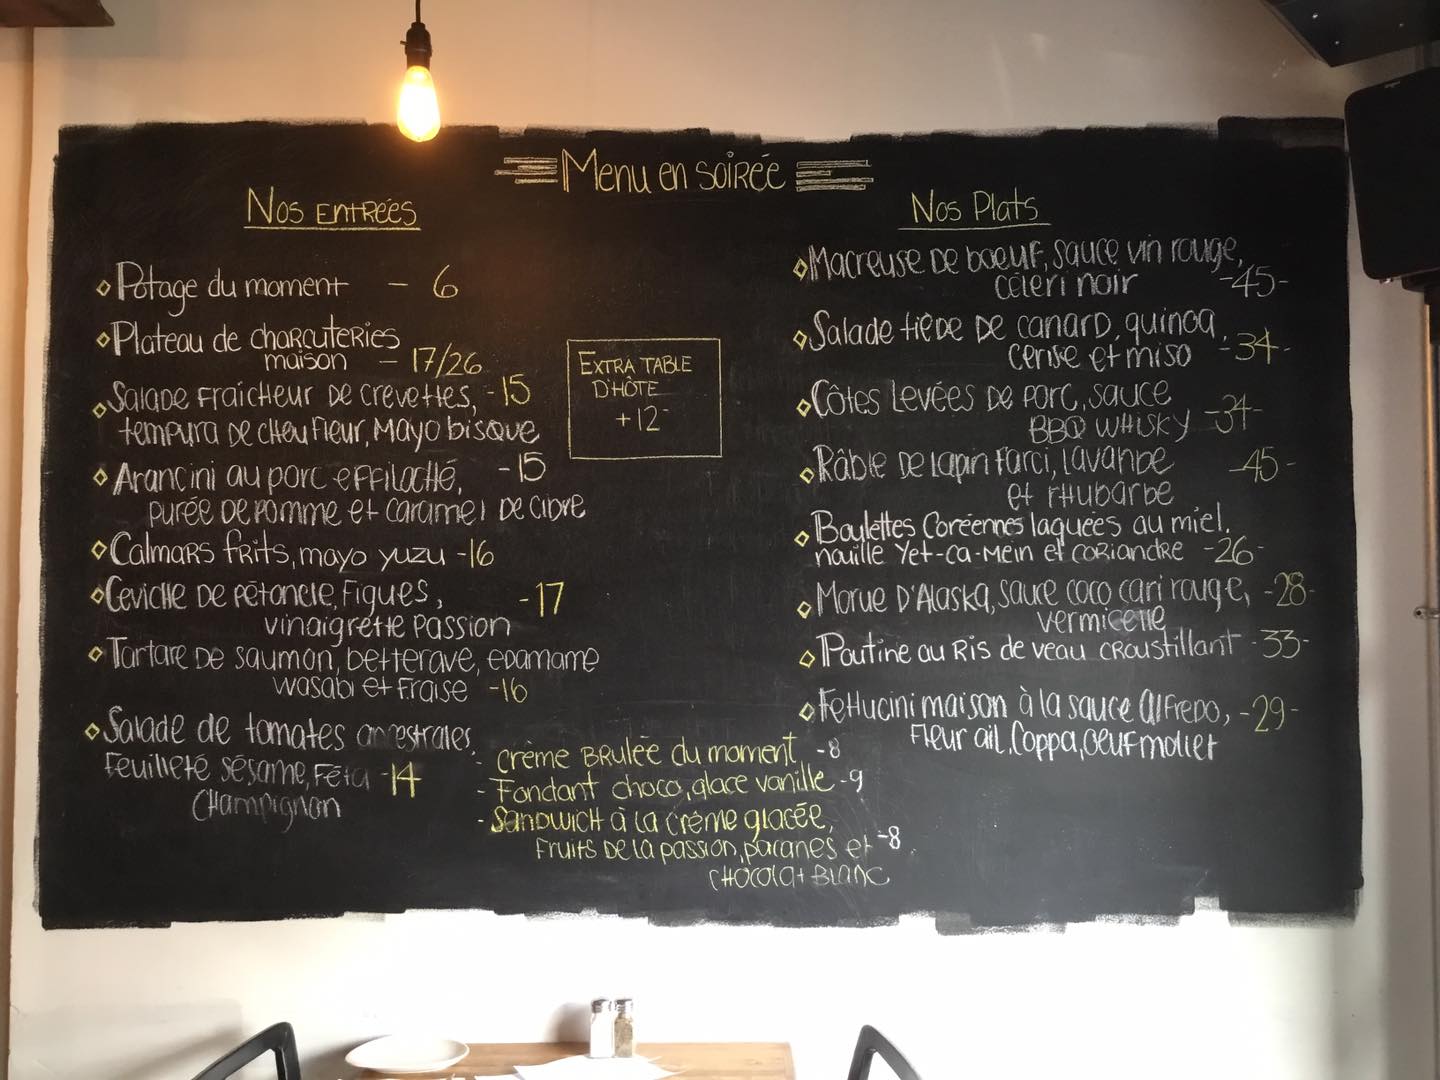 Menu en soirée
Nos Entrées
Potage du moment - 6
Plateau de charcuteries
maison - 17/26
Salade fraîcheur de crevettes, -15
tempura de chou fleur, mayo bisque
Arancini au porc effiloché, -15
purée de pomme et caramel de cidre
Calmars frits, mayo yuzu -16
Ceviche de pétoncle, figues, -17
vinaigrette passion
Tartare de saumon, betterave, edamame
wasabi et fraise -16
Salade de tomates ancestrales,
feuilleté sésame, féta -14
champignon
Extra table
d'hôte
+12-
crème brulée du moment -8
- Fondant choco, glace vanille -9
- Sandwich à la crème glacée,
fruits de la passion, pacanes et -8
chocolat blanc
Nos Plats
Macreuse de boeuf, sauce vin rouge,
céleri noir -45-
Salade tiède de canard, quinoa,
cerise et miso -34-
Côtes levées de porc, sauce
BBQ whisky -34-
Râble de lapin farci, lavande -45-
et rhubarbe
Boulettes Coréennes laquées au miel,
nouille yet-ca-mein et coriandre -26-
Morue d'Alaska, sauce coco cari rouge, -28-
vermicelle
Poutine au ris de veau croustillant -33-
Fettucini maison à la sauce alfredo, -29-
fleur ail, coppa, oeuf mollet